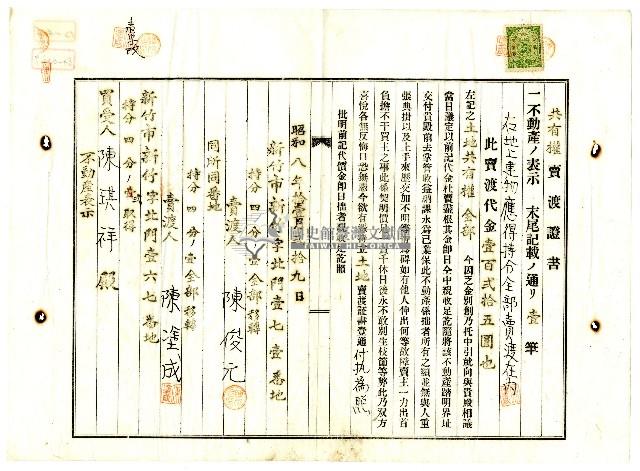 共有權賣渡證書
一不動產ノ表示 末尾記載ノ通リ 壹筆
右地上建物應得持分全部賣渡在內
此賣渡代金壹百貳拾五圓也
左記之土地共有權全部 今因乏金別創乃托中引就向與貴殿相議
當日議定以前記代金杜賣盡根其金即日仝中親收足訖隨將該不動產踏明界址
交付貴殿前去掌管收益納課永為己業保此不動產係拙者所有之額並無與人重
張典掛以及上手來歷交加不明等情為碍如有他人伸出何等故障賣主一力出首
負擔不干買主之事此係契明價足一賣千休日後永不敢別生枝節等弊此乃双方
喜悅各無反悔口恐無憑今欲有憑立土地賣渡証書壹通付执為照
批明前記代價金即日拙者收足訖照
昭和八年 拾九日
新竹市新竹字北門壹七壹番地
持分四分ノ壹全部移轉
賣渡人 陳俊元
同所同番地
持分四分ノ壹全部移轉
賣渡人 陳塗成
新竹市新竹字北門壹六七番地
持分四分ノ 取得
買受人 陳琪祥 殿
不動產表示
國史館臺灣文獻館
TAIWAN HISTORICA